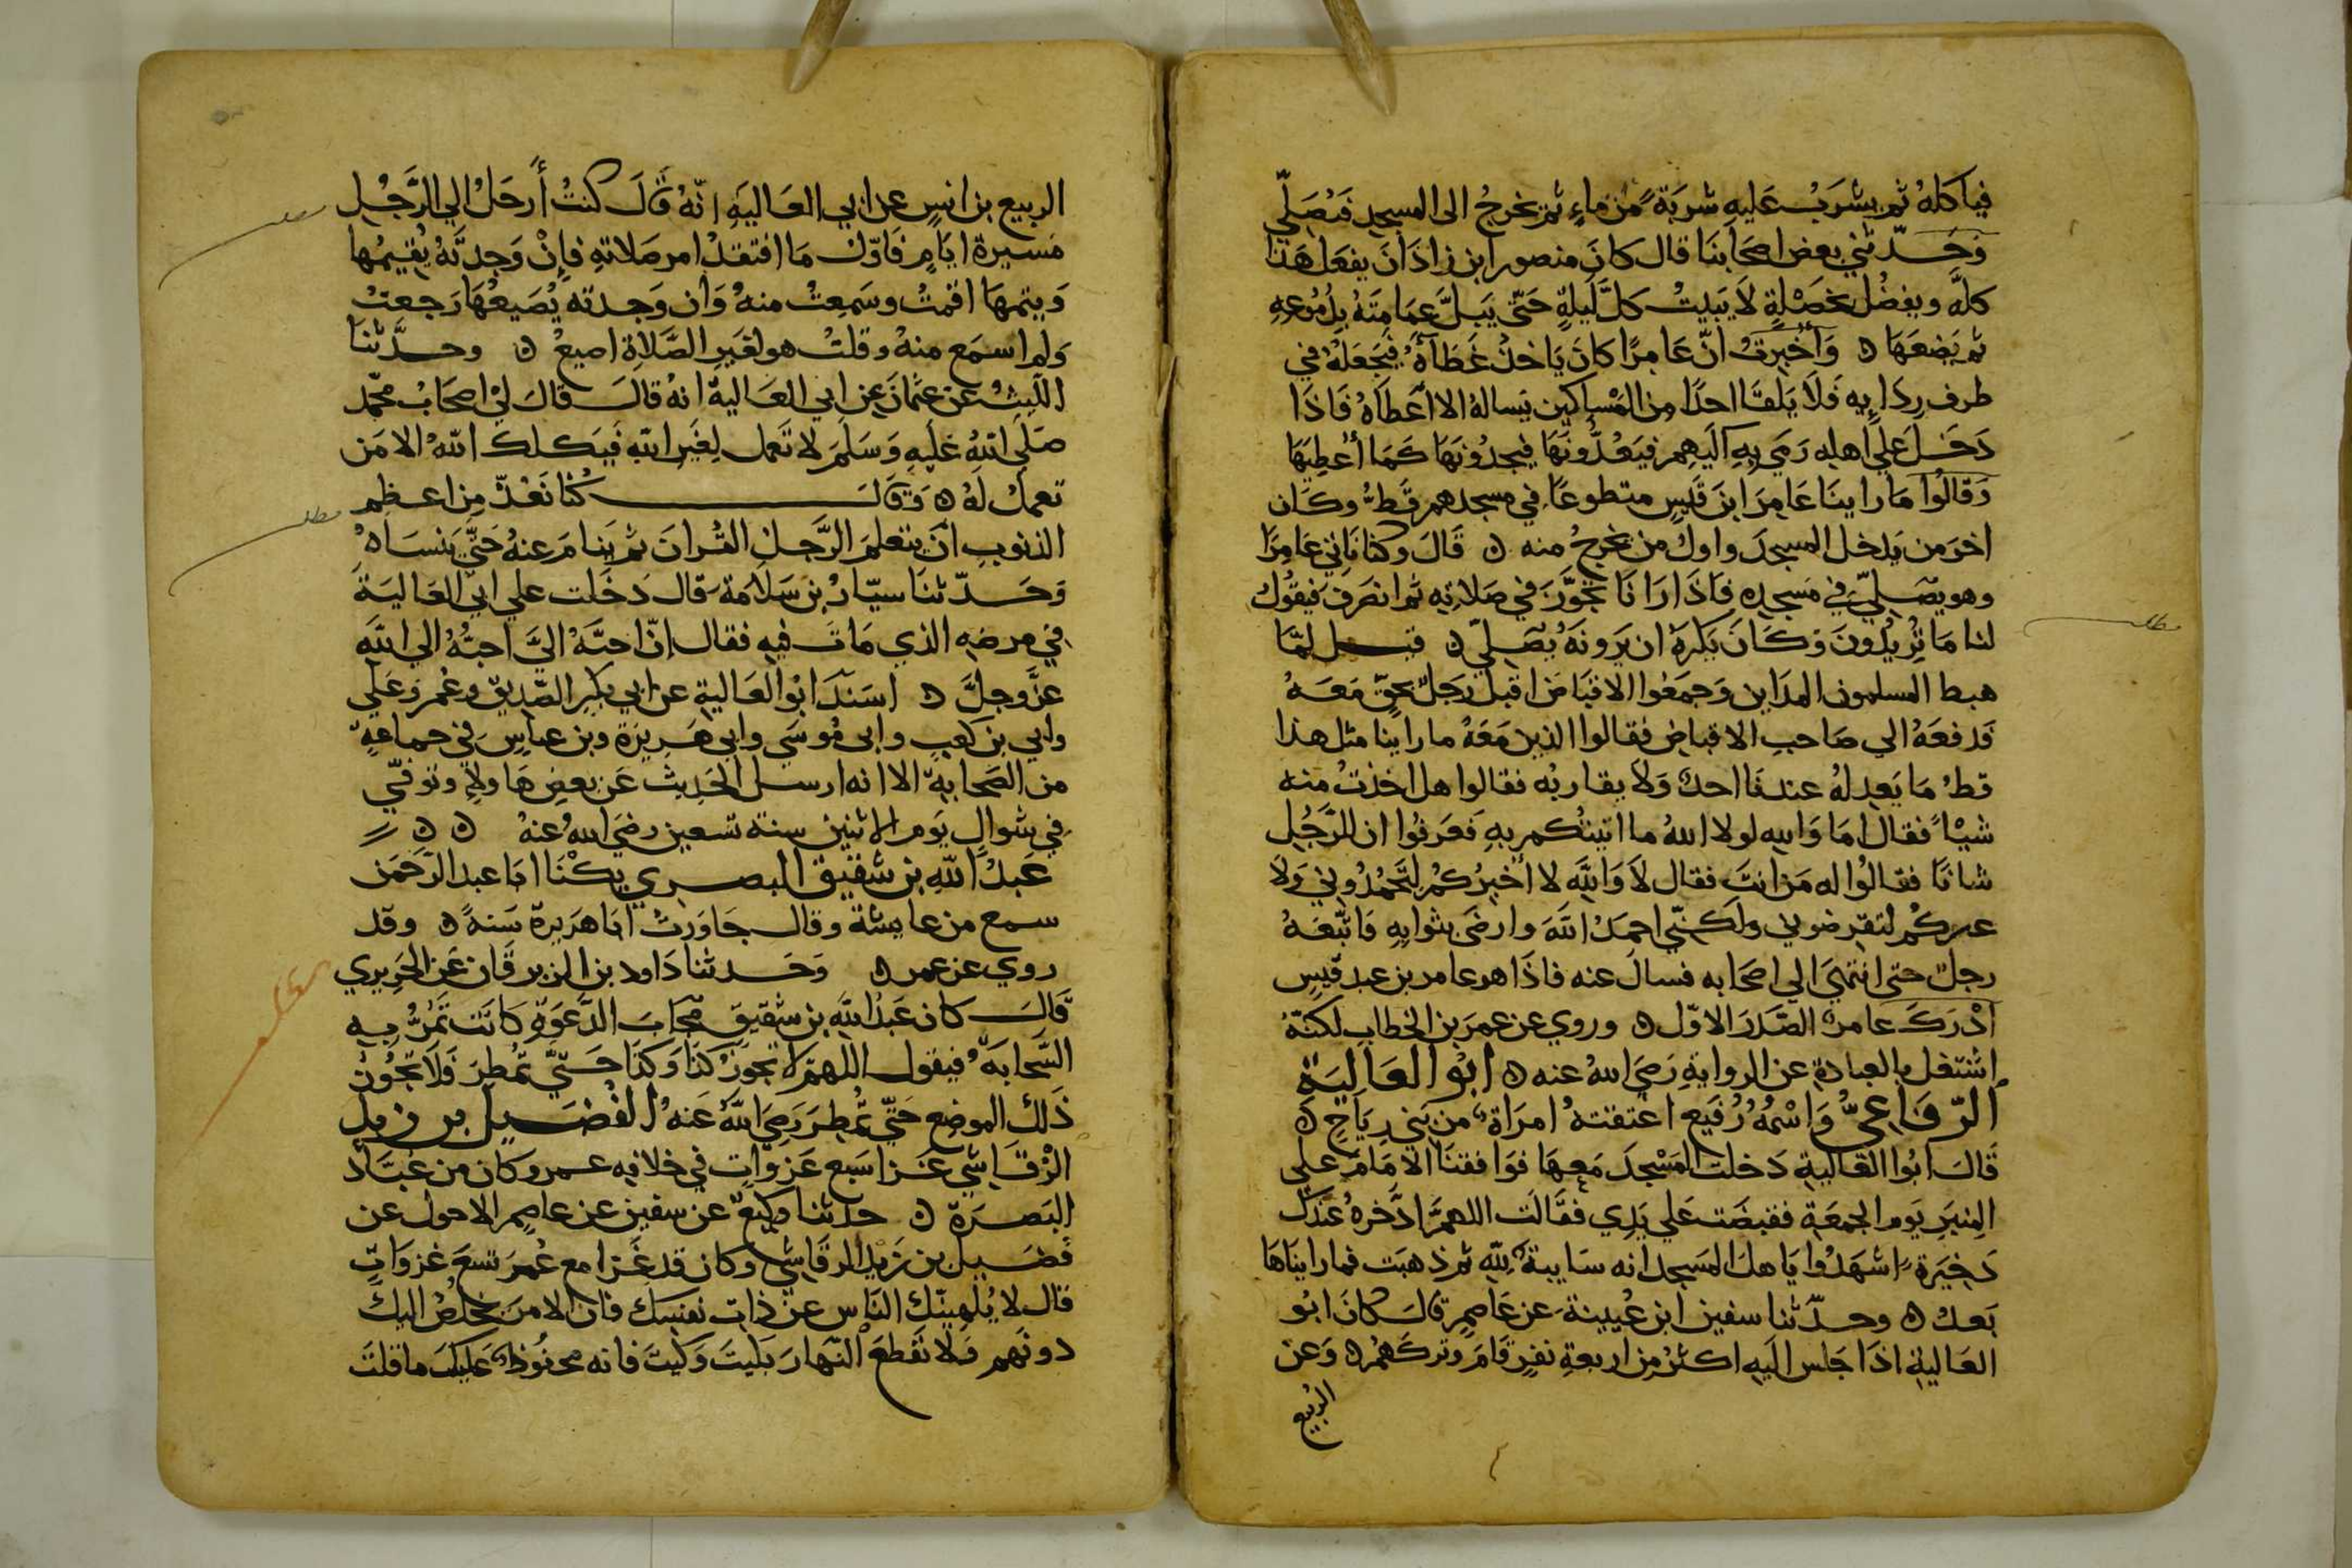 فياكله ثم يشرب عليه شربة من ماء ثم يخرج الى المسجد فيصلي
وحدثني بعض اصحابنا قال كان منصور ابن زاذان يفعل هذا
كله ويفضل بخصلة لا يبيت كل ليلة حتى يبل عمامته بدموعه
ثم يضعها ۞ وأخبرت ان عامرا كان ياخذ عطاه فيجعله في
طرف ردايه فلا يلقا احدا من المساكين يساله الا أعطاه فاذا
دخل علي اهله رمي به اليهم فيعدونها فيجدونها كما أعطيها
وقالوا ما راينا عامر ابن قيس متطوعا في مسجدهم قط وكان
اخر من يدخل المسجد واول من يخرج منه ۞ قال وكنا ناتي عامرا
وهو يصلي في مسجده فاذا رانا تجوز في صلاته ثم انصرف فيقول
لنا ما تريدون وكان يكره ان يرونه يصلي ۞ قيل لما
هبط المسلمون المداين وجمعوا الاقباض اقبل رجل بحق معه
فدفعه الي صاحب الاقباض فقالوا الذين معه ما راينا مثل هذا
قط ما يعدله عندنا احد ولا يقاربه فقالوا هل اخذت منه
شيئا فقال اما والله لولا الله ما اتيتكم به فعرفوا ان للرجل
شانا فقالوا له من انت فقال لا والله لا أخبركم لتحمدوني ولا
غيركم لتقرضوني ولكني احمد الله وارضى بثوابه فاتبعه
رجل حتى انتهي الي اصحابه فسال عنه فاذا هو عامر بن عبد قيس
أدرك عامر الصدر الاول ۞ وروي عن عمر بن الخطاب لكنه
اشتغل بالعبادة عن الرواية رضي الله عنه ۞ ابو العالية
الرقاعي واسمه رفيع اعتقته امراة من بني رياح ۞
قال ابوا العالية دخلت المسجد معها فوافقنا الامام علي
المنبر يوم الجمعة فقبضت علي يدي فقالت اللهم ادخره عندك
دخيرة اشهدوا ياهل المسجد انه سايبة لله ثم ذهبت فما رايناها
بعد ۞ وحدثنا سفين ابن عيينة عن عاصم قال كان ابو
العالية اذا جلس اليه اكثر من اربعة نفر قام وتركهم ۞ وعن
الربيع
الربيع بن انس عن ابي العالية انه قال كنت أرحل الي الرجل
مسيرة ايام فاول ما افتقد امر صلاته فإن وجدته يقيمها
ويتمها اقمت وسمعت منه وان وجدته يضيعها رجعت
ولم اسمع منه وقلت هو لغير الصلاة اضيع ۞ وحدثنا
الليث عن عثمان عن ابي العالية انه قال قال لي اصحاب محمد
صلى الله عليه وسلم لا تعمل لغير الله فيكلك الله الا من
تعمل له ۞ وقال كنا نعد من اعظم
الذنوب أن يتعلم الرجل القران ثم ينام عنه حتي ينساه
وحدثنا سيار بن سلامة قال دخلت علي ابي العالية
في مرضه الذي مات فيه فقال ان احبه الي احبه الي الله
عز وجل ۞ اسند ابوا العالية عن ابي بكر الصديق وعمر وعلي
وابي بن كعب وابى موسي وابي هريرة وبن عباس في جماعة
من الصحابة الا انه ارسل الحديث عن بعض هاولاء وتوفي
في شوال يوم الاثنين سنة تسعين رضي الله عنه ۞ ۞
عبد الله بن شقيق البصري يكنا ابا عبد الرحمن
سمع من عايشة وقال جاورت ابا هريرة سنة ۞ وقد
روي عن عمر ۞ وحدثنا داود بن الزبرقان عن الجريري
قال كان عبد الله بن شقيق مجاب الدعوة كانت تمر به
السحابة فيقول اللهم لا تجوز كذا وكذا حتي تمطر فلا تجوز
ذلك الموضع حتي تمطر رضي الله عنه الفضيل بن زيد
الرقاشي غزا سبع غزوات في خلافه عمر وكان من عباد
البصرة ۞ حدثنا وكيع عن سفين عن عاصم الاحول عن
فضيل بن زيد الرقاشي وكان قد غزا مع عمر تسع غزوات
قال لا يلهينك الناس عن ذات نفسك فان الامر يخلص اليك
دونهم ولا تقطع النهار بكيت وكيت فانه محفوظ عليك ما قلت